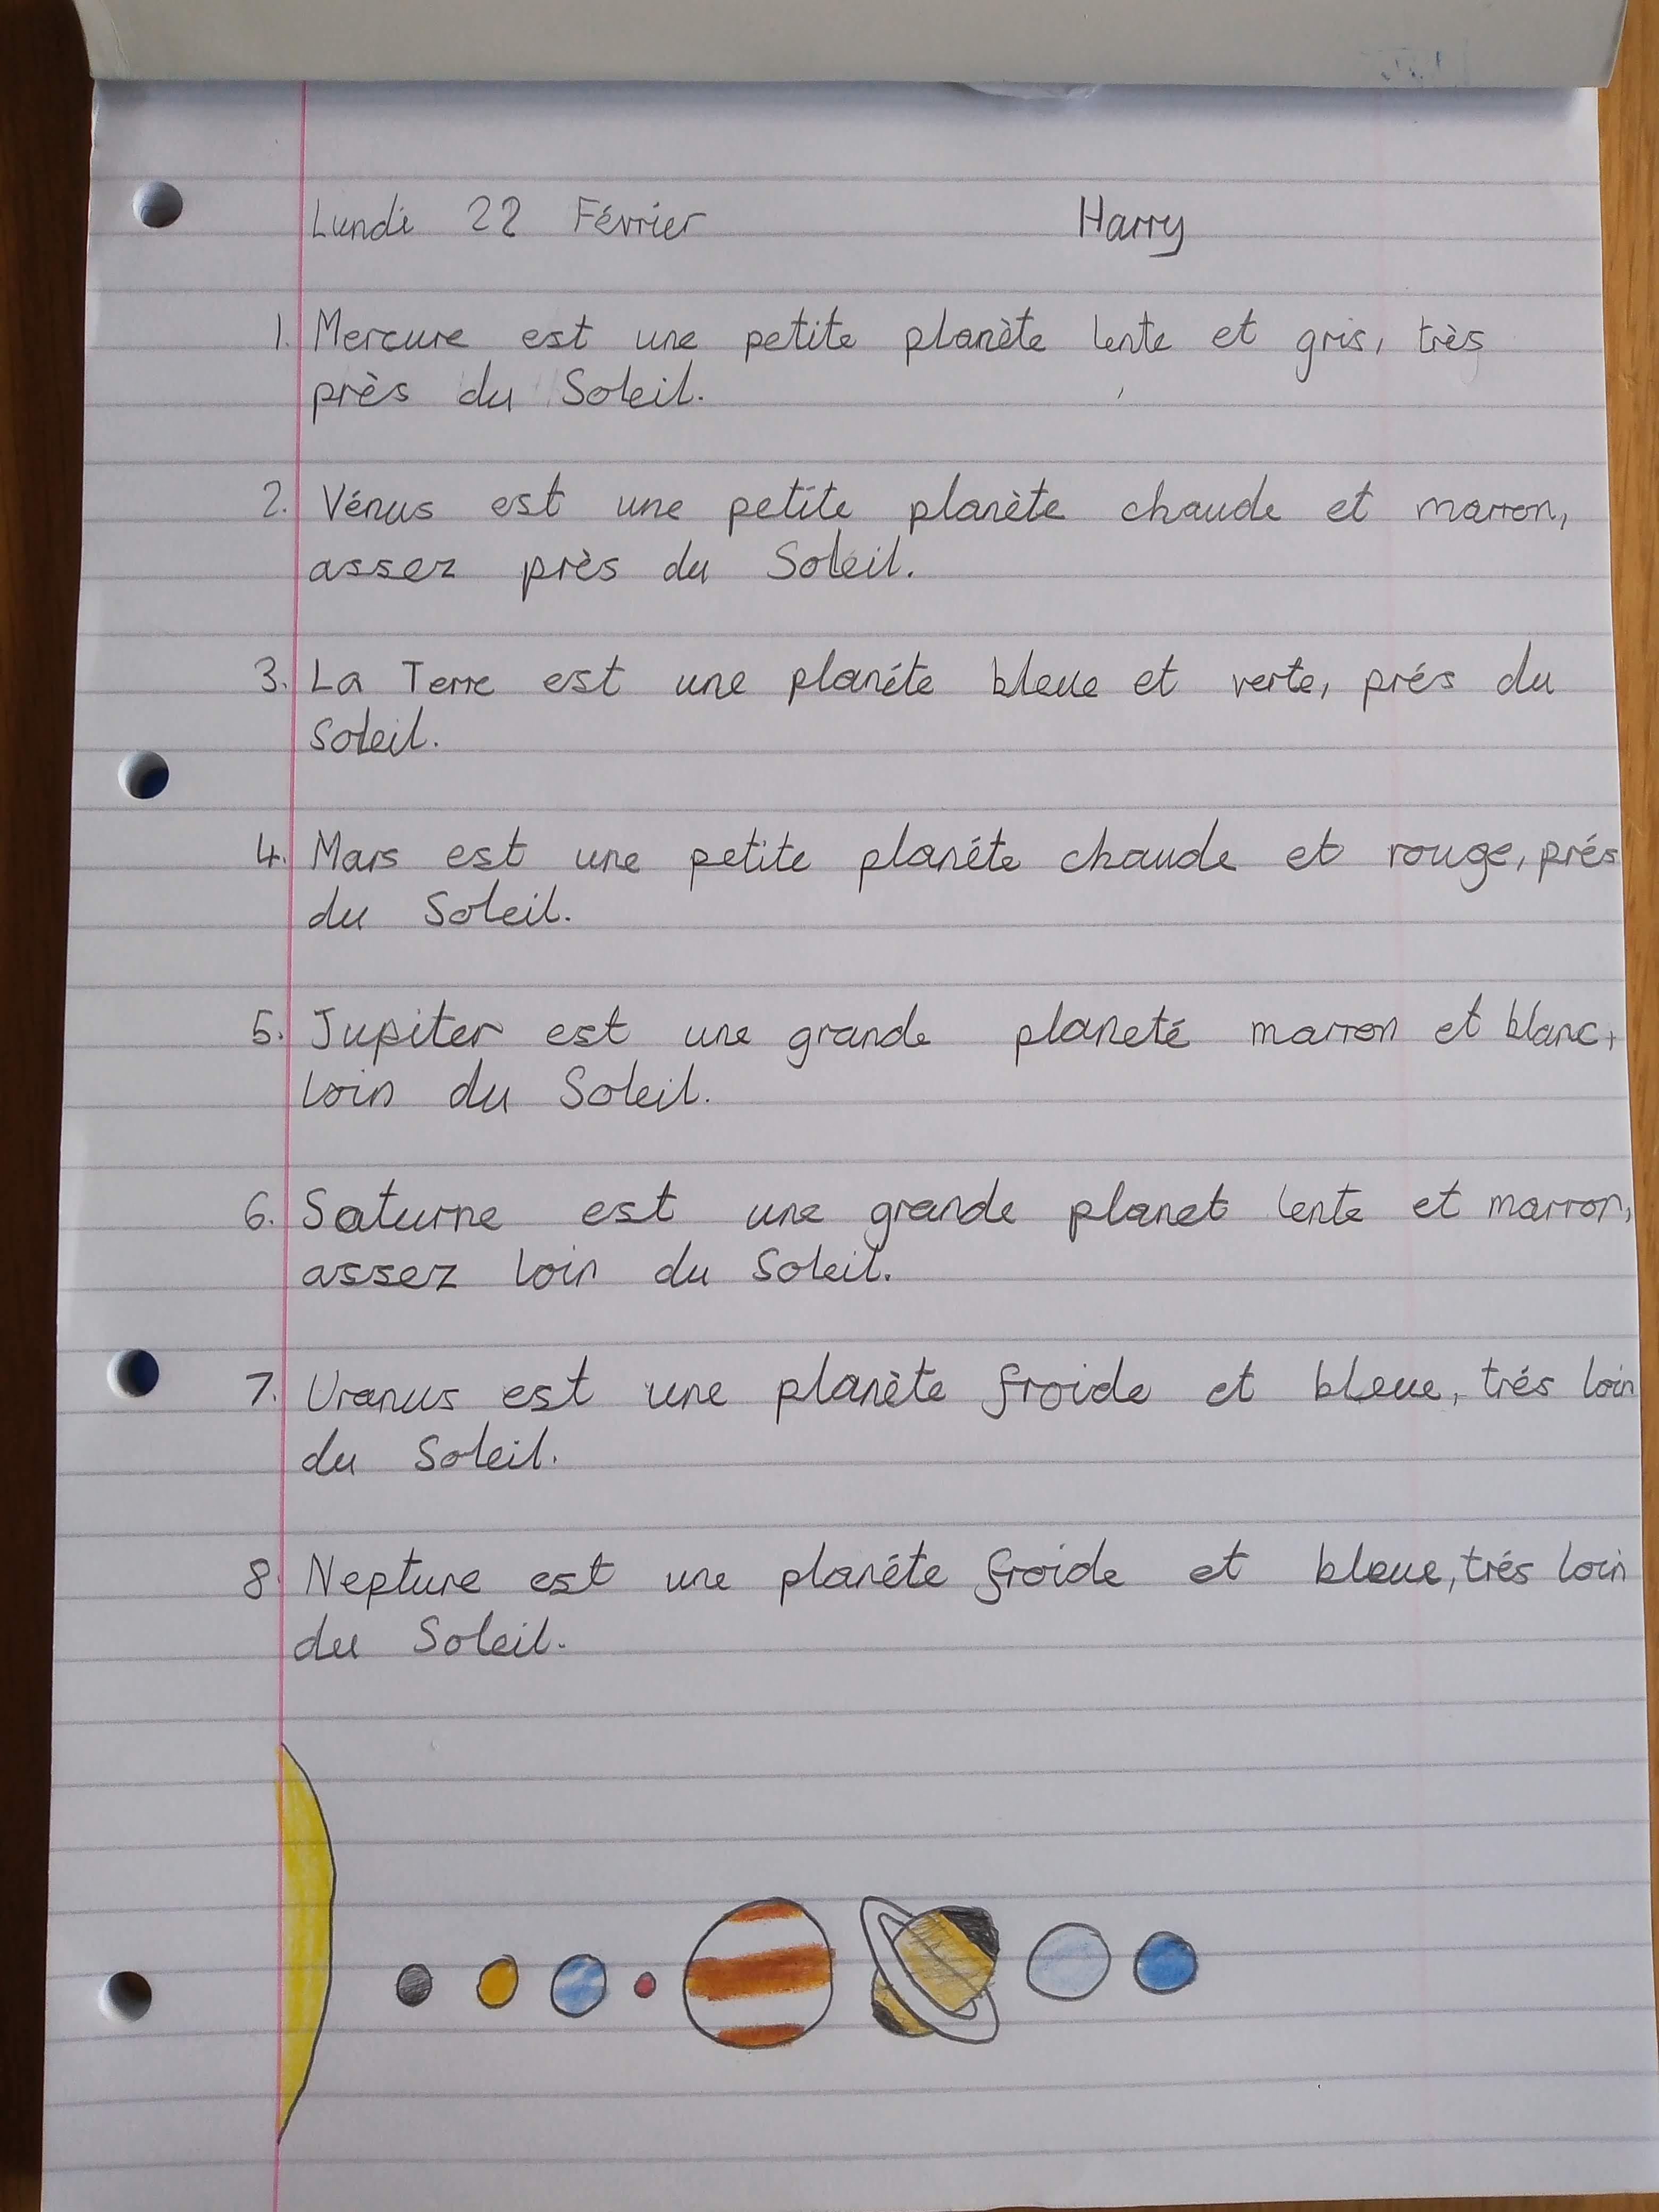 Lundi 22 Février Harry
1. Mercure est une petite planète lente et gris, très
près du Soleil.
2. Vénus est une petite planète chaude et marron,
assez près du Soleil.
3. La Terre est une planéte bleue et verte, prés du
Soleil.
4. Mars est une petite planéte chaude et rouge, prés
du Soleil.
5. Jupiter est une grande planeté marron et blanc,
loin du Soleil.
6. Saturne est une grande planet lente et marron,
assez loin du Soleil.
7. Uranus est une planète froide et bleue, trés loin
du Soleil.
8. Neptune est une planéte froide et bleue, trés loin
du Soleil.